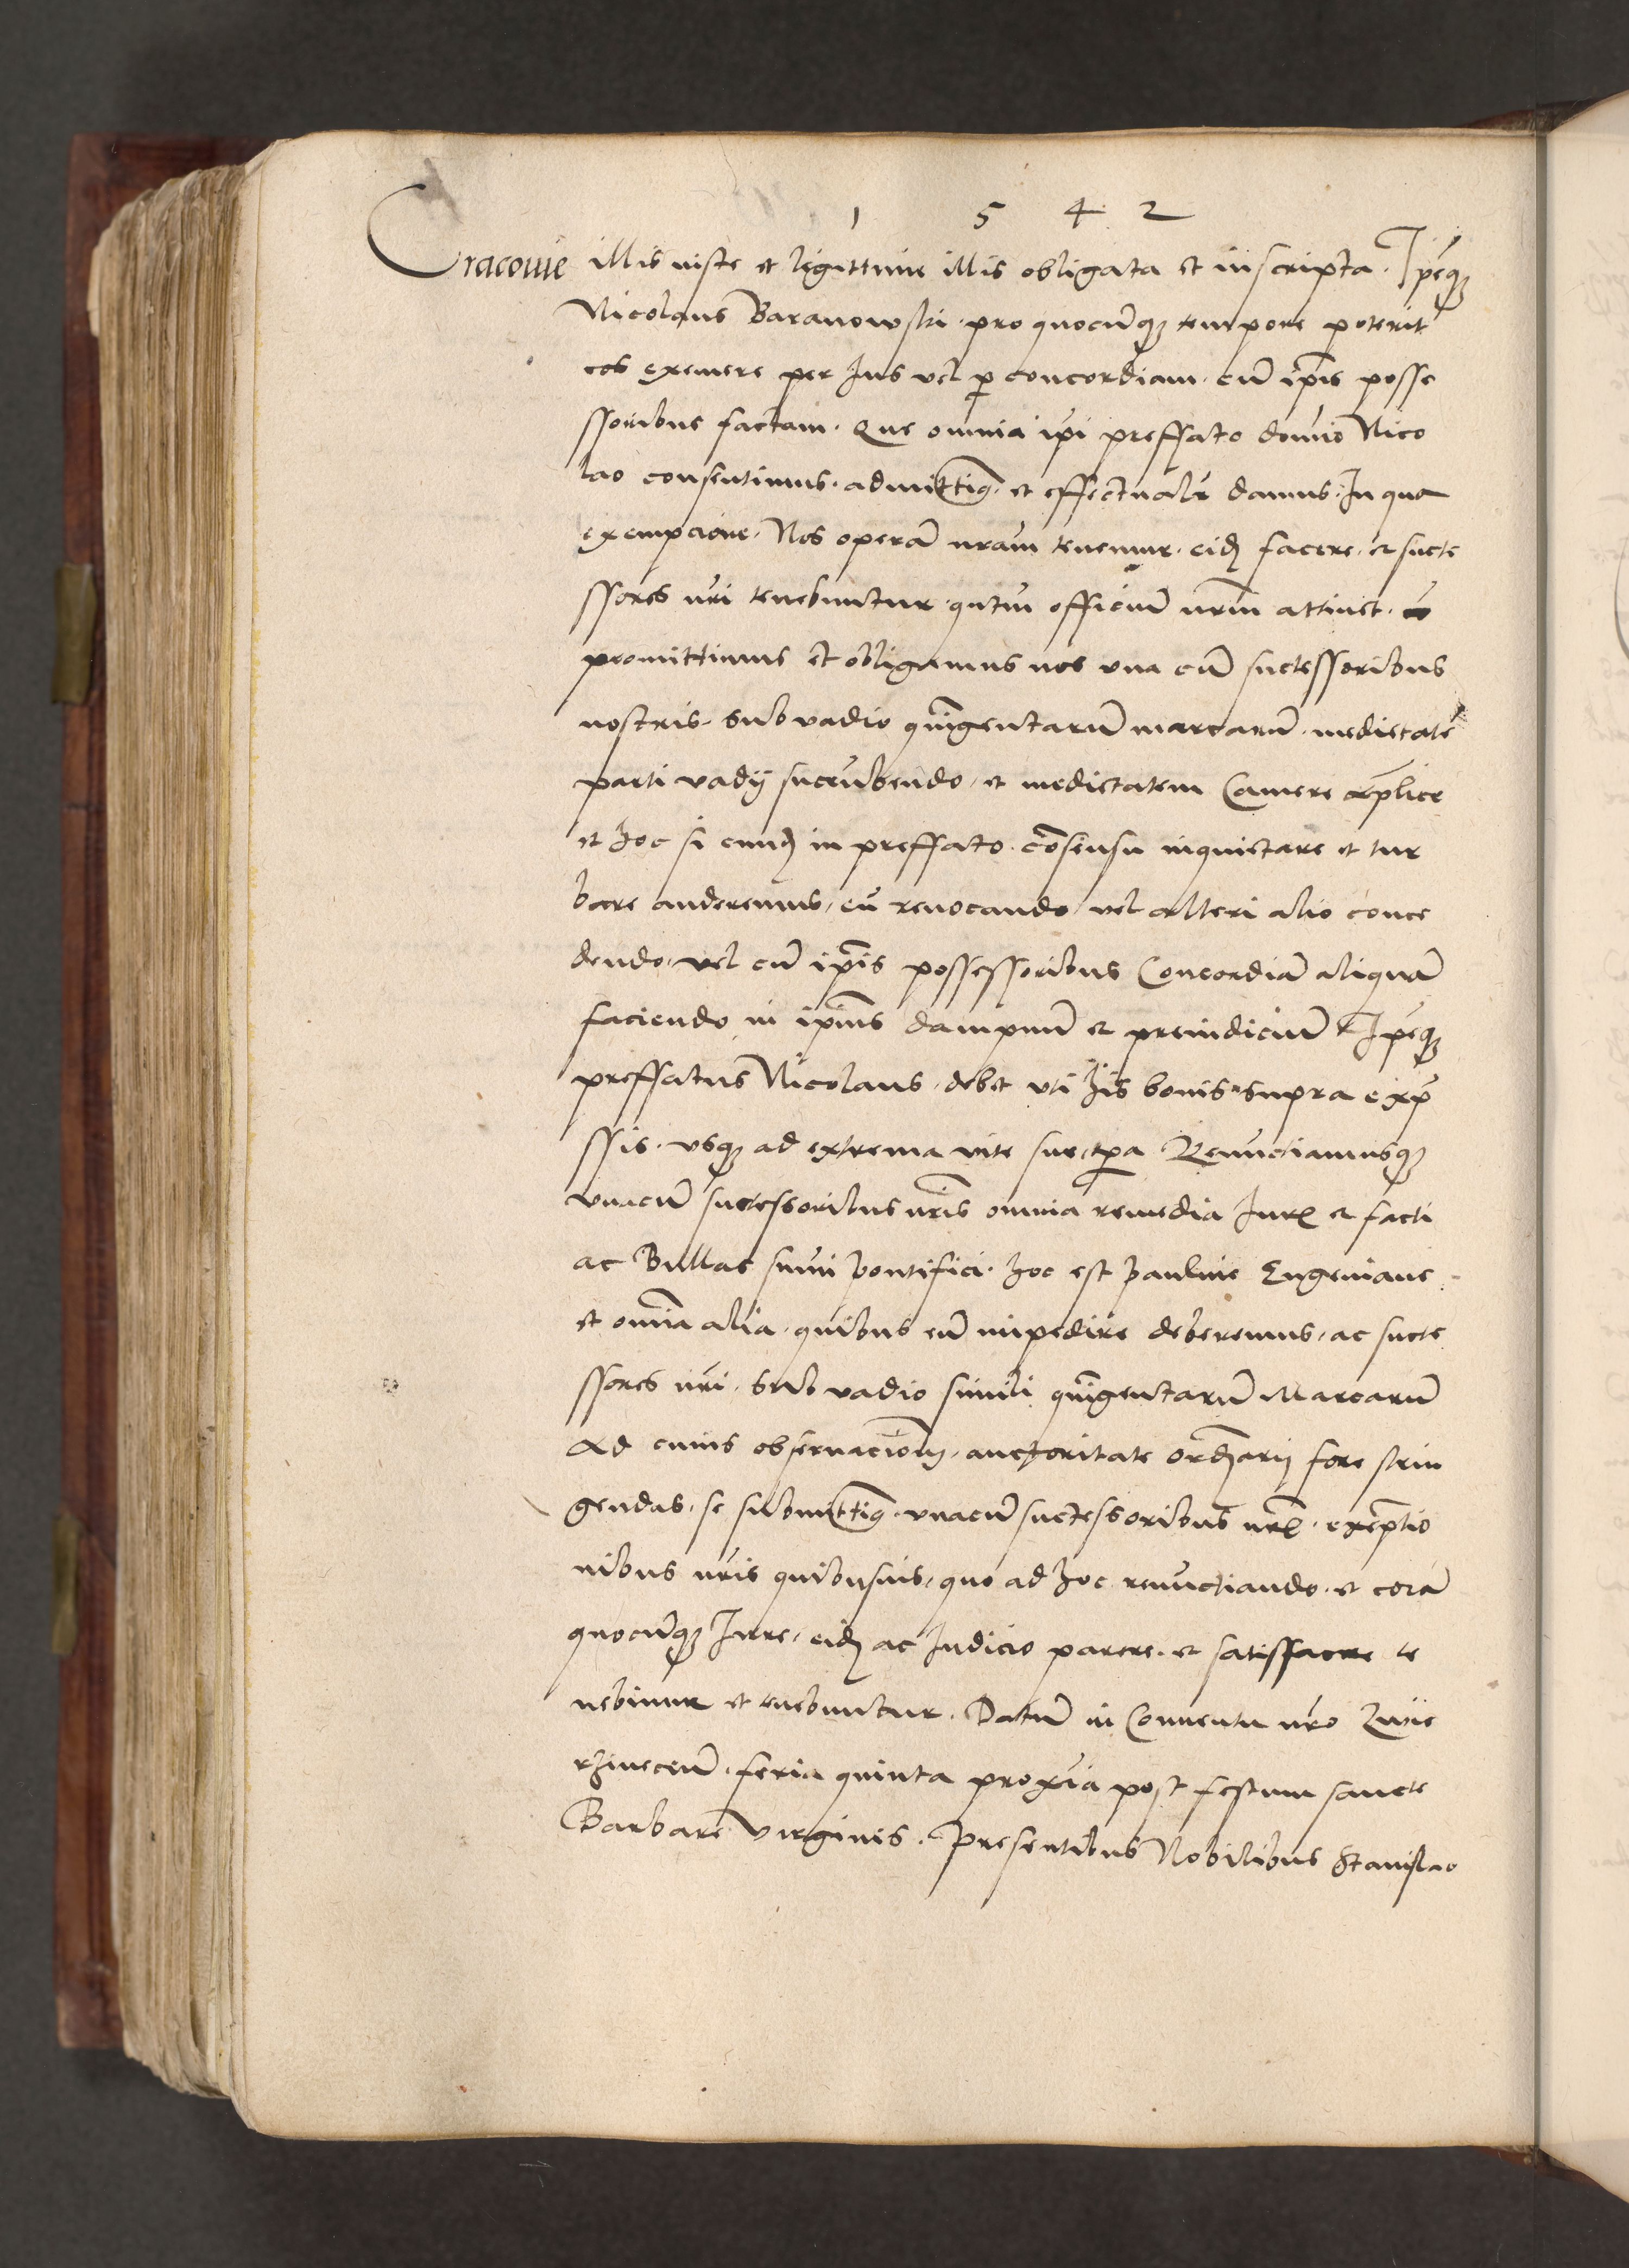 1 5 4 2
Cracouie
illis iuste et legittime illis obligata et inscripta. Ip̄eqꝫ
Nicolaus Baranowski. pro quocūqꝫ tempore poterit
eos exemere per Ius vel ꝑ concordiam. cū ip̄is posse
ssoribus factam. Que omnia ip̄i preffato domīo Nico
lao consentimus. admittiꝗ et effectualr̄ damus. In qua
exempcione. Nos operā nr̄am tenemur. eidꝫ facere. et succe
ssores nr̄i tenebuntur qn̄tum officiū nr̄m attinet.
promittimus et obligamus nos vna cū successoribus
nostris. Sub vadio quīgentarū marcarū. medietatē
parti vadij succūbendo, et medietatem Camere Ap̄lice
et hoc si eundꝫ in preffato. cōsensu inquietare et tur
bare auderemus, eū reuocando, vel alteri alio conce
dendo, vel cū ip̄is possessoribus Concordiā aliquā
faciendo in ip̄ius dampnū et preiudiciū Ip̄eqꝫ
preffatus Nicolaus, debet vti his bonis supra exp̄
ssis. vsqꝫ ad extrema vite sue tp̄a Renuctiamusqꝫ
vnacū successoribus nr̄is omnia remedia Iurꝭ et facti
ac Bullas sum̄i Pontifici. hoc est Pauline Eugeniane
et om̄ia alia. quibus eū impedire deberemus, ac succe
ssores nr̄i. Sub vadio simili quīgentarū Marcarū
Ad cuius obseruacionē, auctoritate ordīarij fore strin
gendas, se submittiꝗ. vnacū successoribus nr̄ꝭ. exēptio
nibus nr̄is quibusuis, quo ad hoc renūctiando. et corā
quocūqꝫ Iure, eidꝫ ac Iudicio parere. et satisfacere te
nebimur et tenebuntur. Datū in Conuentu nr̄o Zwie
rzinecen̄. feria quinta proxīa post festum sancte
Barbare virginis. Presentibus Nobilibus Stanislao